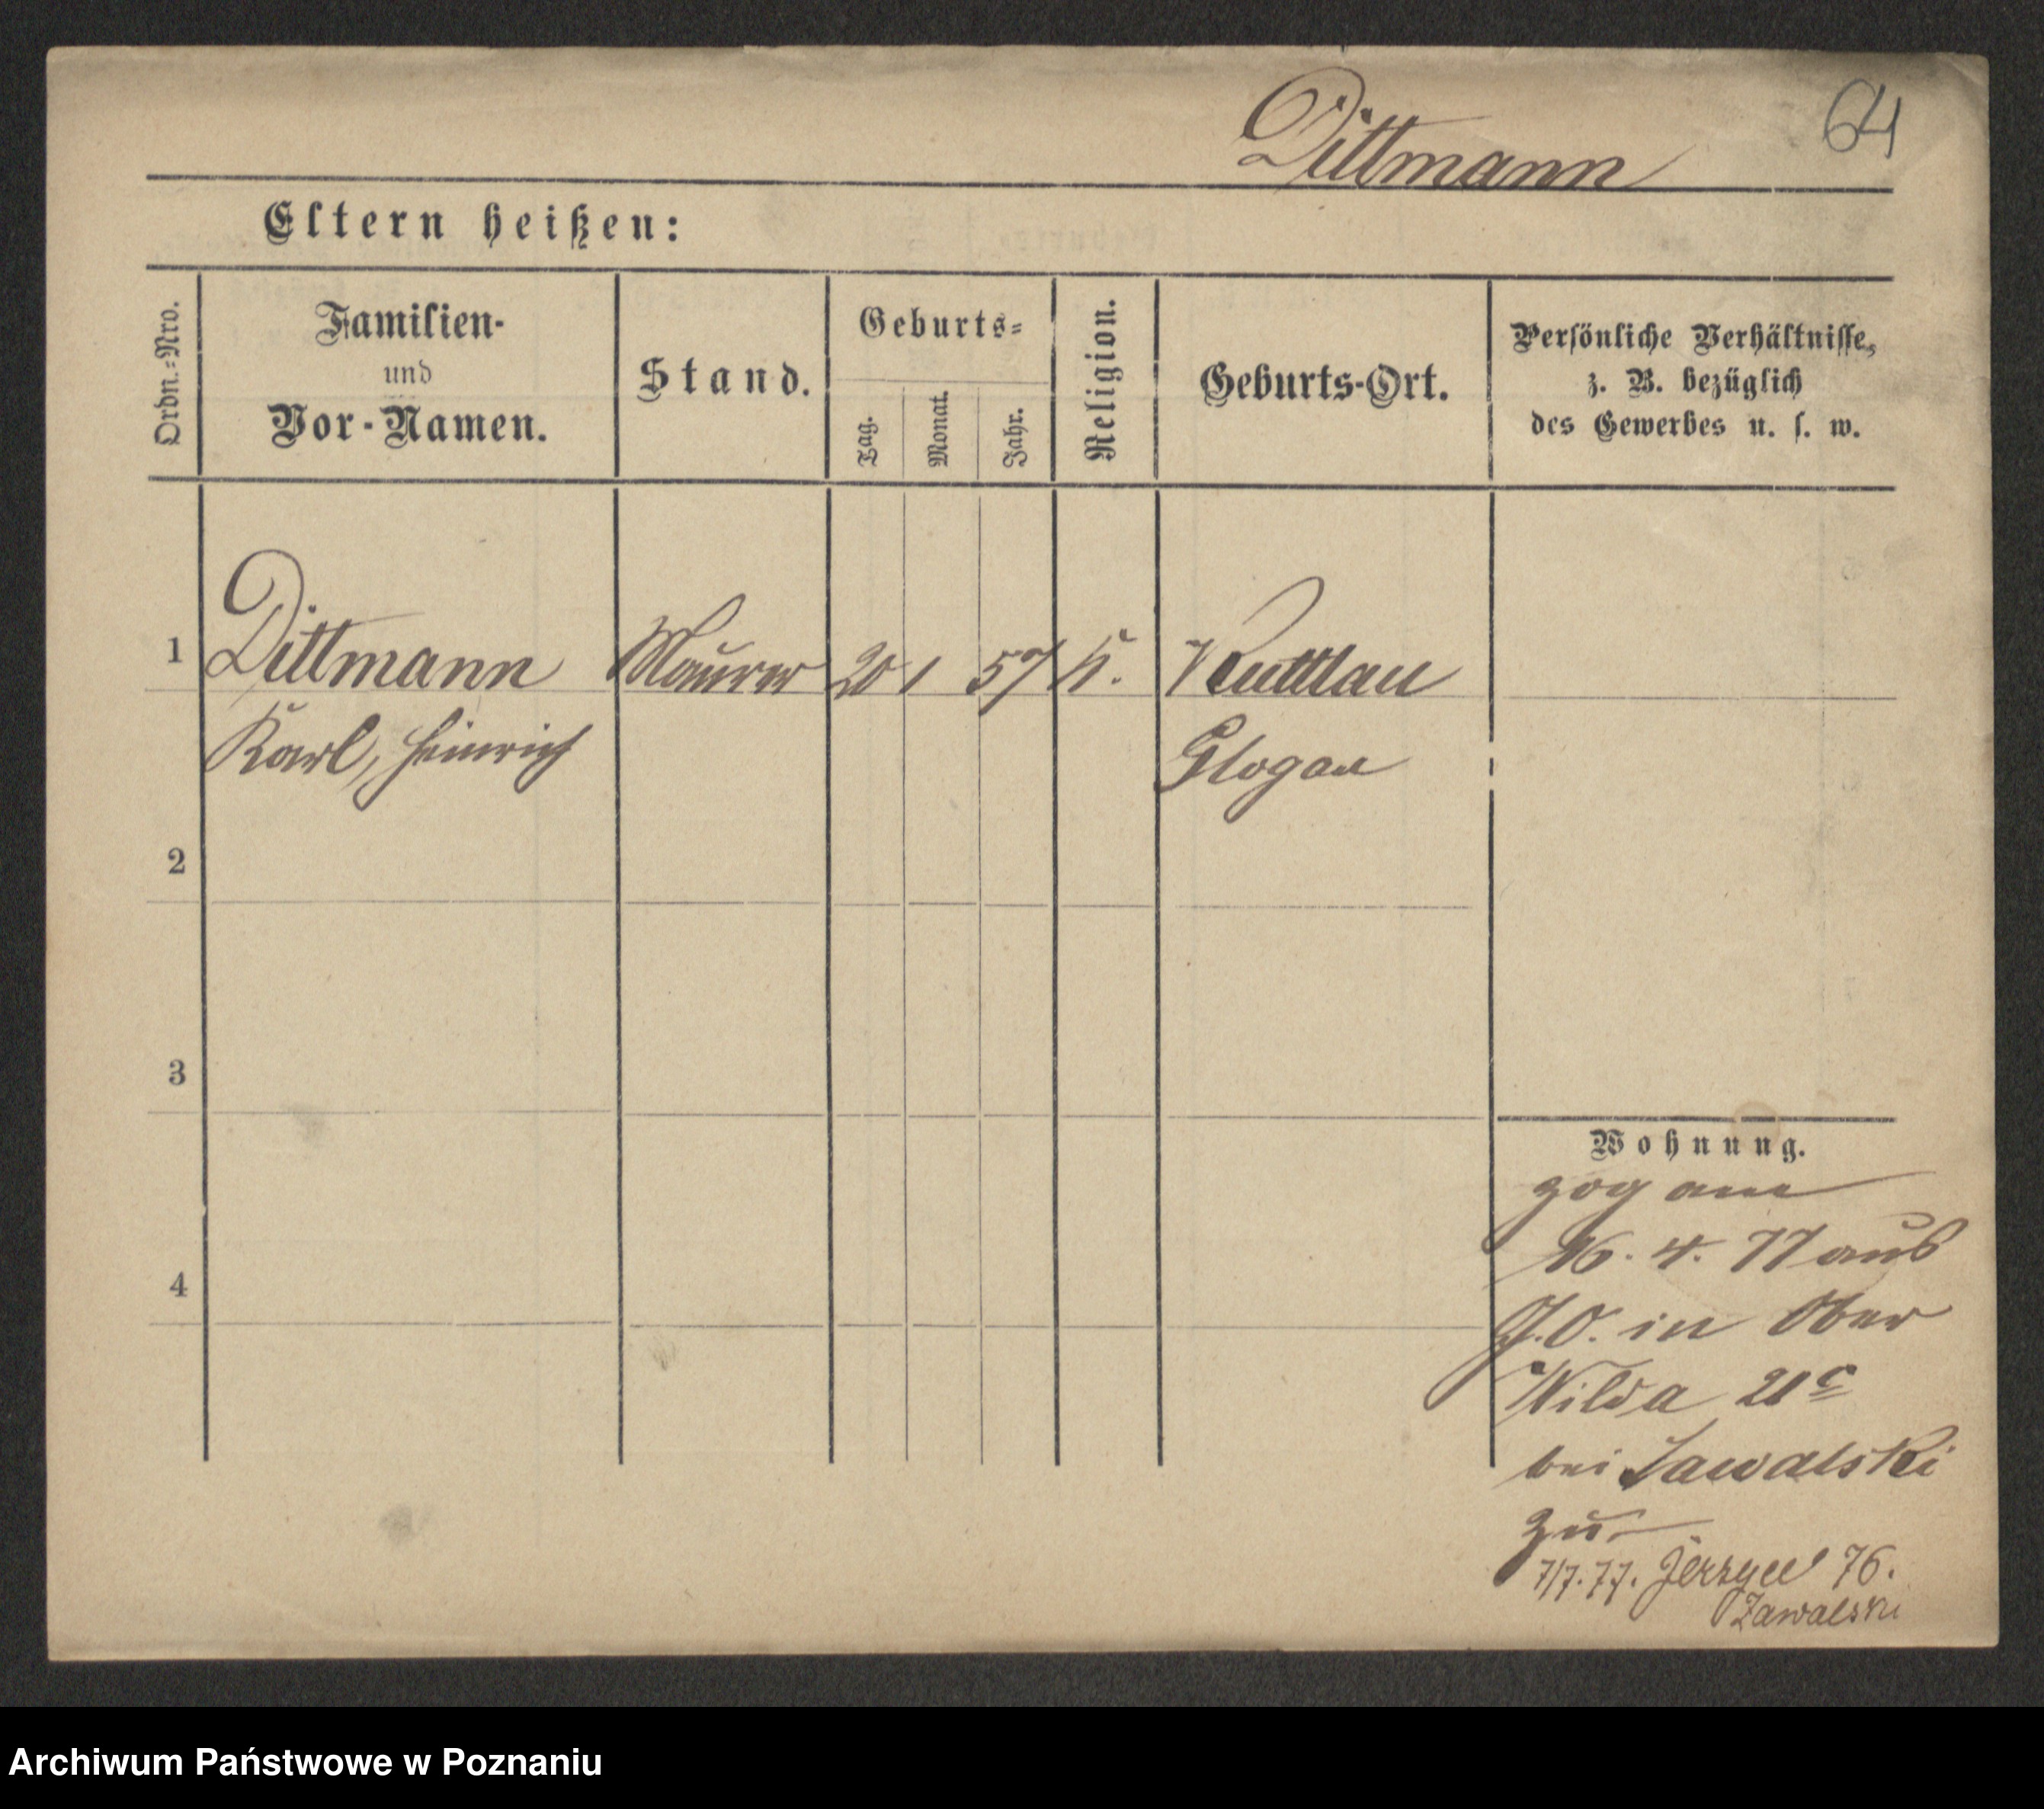 Dittmann
64
Eltern heißen:
Ordn.-Nro.
Familien-
und
Vor-Namen.
Stand.
Geburts-
Tag.
Monat.
Jahr.
Religion.
Geburts-Ort.
Persönliche Verhältnisse,
z. B. bezüglich
des Gewerbes u. s. w.
1 Dittmann Maurer 20 1 57 k. Kuttlau
Karl, Heinrich Glogau
2
3
4
Wohnung.
zog am
16. 4. 77 aus
G.O. in Ober
Wilda 21c
bei Zawalski
zu
7/7. 77. Jerzyce 76.
Zawalski
Archiwum Państwowe w Poznaniu